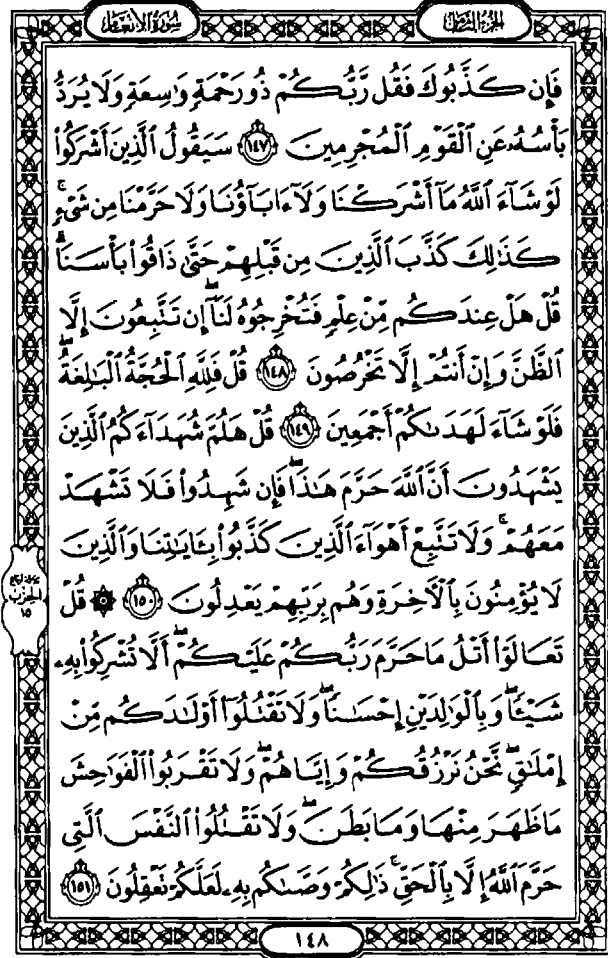 الجزء الثامن
سورة الأنعام
فَإِن كَذَّبُوكَ فَقُل رَّبُّكُمْ ذُو رَحْمَةٍ وَٰسِعَةٍ وَلَا يُرَدُّ
بَأْسُهُۥ عَنِ ٱلْقَوْمِ ٱلْمُجْرِمِينَ ١٤٧ سَيَقُولُ ٱلَّذِينَ أَشْرَكُوا۟
لَوْ شَآءَ ٱللَّهُ مَآ أَشْرَكْنَا وَلَآ ءَابَآؤُنَا وَلَا حَرَّمْنَا مِن شَىْءٍ ۚ
كَذَٰلِكَ كَذَّبَ ٱلَّذِينَ مِن قَبْلِهِمْ حَتَّىٰ ذَاقُوا۟ بَأْسَنَا ۗ
قُلْ هَلْ عِندَكُم مِّنْ عِلْمٍ فَتُخْرِجُوهُ لَنَآ ۖ إِن تَتَّبِعُونَ إِلَّا
ٱلظَّنَّ وَإِنْ أَنتُمْ إِلَّا تَخْرُصُونَ ١٤٨ قُلْ فَلِلَّهِ ٱلْحُجَّةُ ٱلْبَٰلِغَةُ ۖ
فَلَوْ شَآءَ لَهَدَىٰكُمْ أَجْمَعِينَ ١٤٩ قُلْ هَلُمَّ شُهَدَآءَكُمُ ٱلَّذِينَ
يَشْهَدُونَ أَنَّ ٱللَّهَ حَرَّمَ هَٰذَا ۖ فَإِن شَهِدُوا۟ فَلَا تَشْهَدْ
مَعَهُمْ ۚ وَلَا تَتَّبِعْ أَهْوَآءَ ٱلَّذِينَ كَذَّبُوا۟ بِـَٔايَٰتِنَا وَٱلَّذِينَ
لَا يُؤْمِنُونَ بِٱلْـَٔاخِرَةِ وَهُم بِرَبِّهِمْ يَعْدِلُونَ ١٥٠ ۞ قُلْ
تَعَالَوْا۟ أَتْلُ مَا حَرَّمَ رَبُّكُمْ عَلَيْكُمْ ۖ أَلَّا تُشْرِكُوا۟ بِهِۦ
شَيْـًٔا ۖ وَبِٱلْوَٰلِدَيْنِ إِحْسَٰنًا ۖ وَلَا تَقْتُلُوٓا۟ أَوْلَٰدَكُم مِّنْ
إِمْلَٰقٍ ۖ نَّحْنُ نَرْزُقُكُمْ وَإِيَّاهُمْ ۖ وَلَا تَقْرَبُوا۟ ٱلْفَوَٰحِشَ
مَا ظَهَرَ مِنْهَا وَمَا بَطَنَ ۖ وَلَا تَقْتُلُوا۟ ٱلنَّفْسَ ٱلَّتِى
حَرَّمَ ٱللَّهُ إِلَّا بِٱلْحَقِّ ۚ ذَٰلِكُمْ وَصَّىٰكُم بِهِۦ لَعَلَّكُمْ تَعْقِلُونَ ١٥١
الحزب
١٥
١٤٨